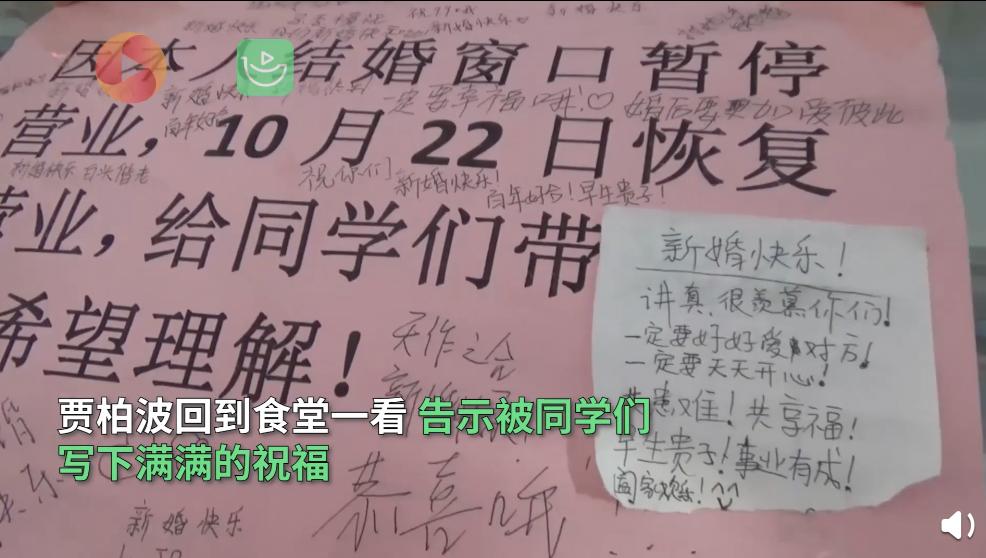 新婚快乐
新婚快乐
因本人结婚窗口暂停
新婚快乐
百年好合
一定要幸福哦!♡
婚后要更加爱彼此
营业,10月22日恢复
新婚快乐 白头偕老
祝你们
新婚快乐!
百年好合!早生贵子!
营业,给同学们带
希望理解!
天作之合
恭喜哦
新婚快乐
新婚快乐!
讲真,很羡慕你们!
一定要好好爱对方!
一定要天天开心!
共患难!共享福!
早生贵子!事业有成!
阖家欢乐!
贾柏波回到食堂一看 告示被同学们
写下满满的祝福